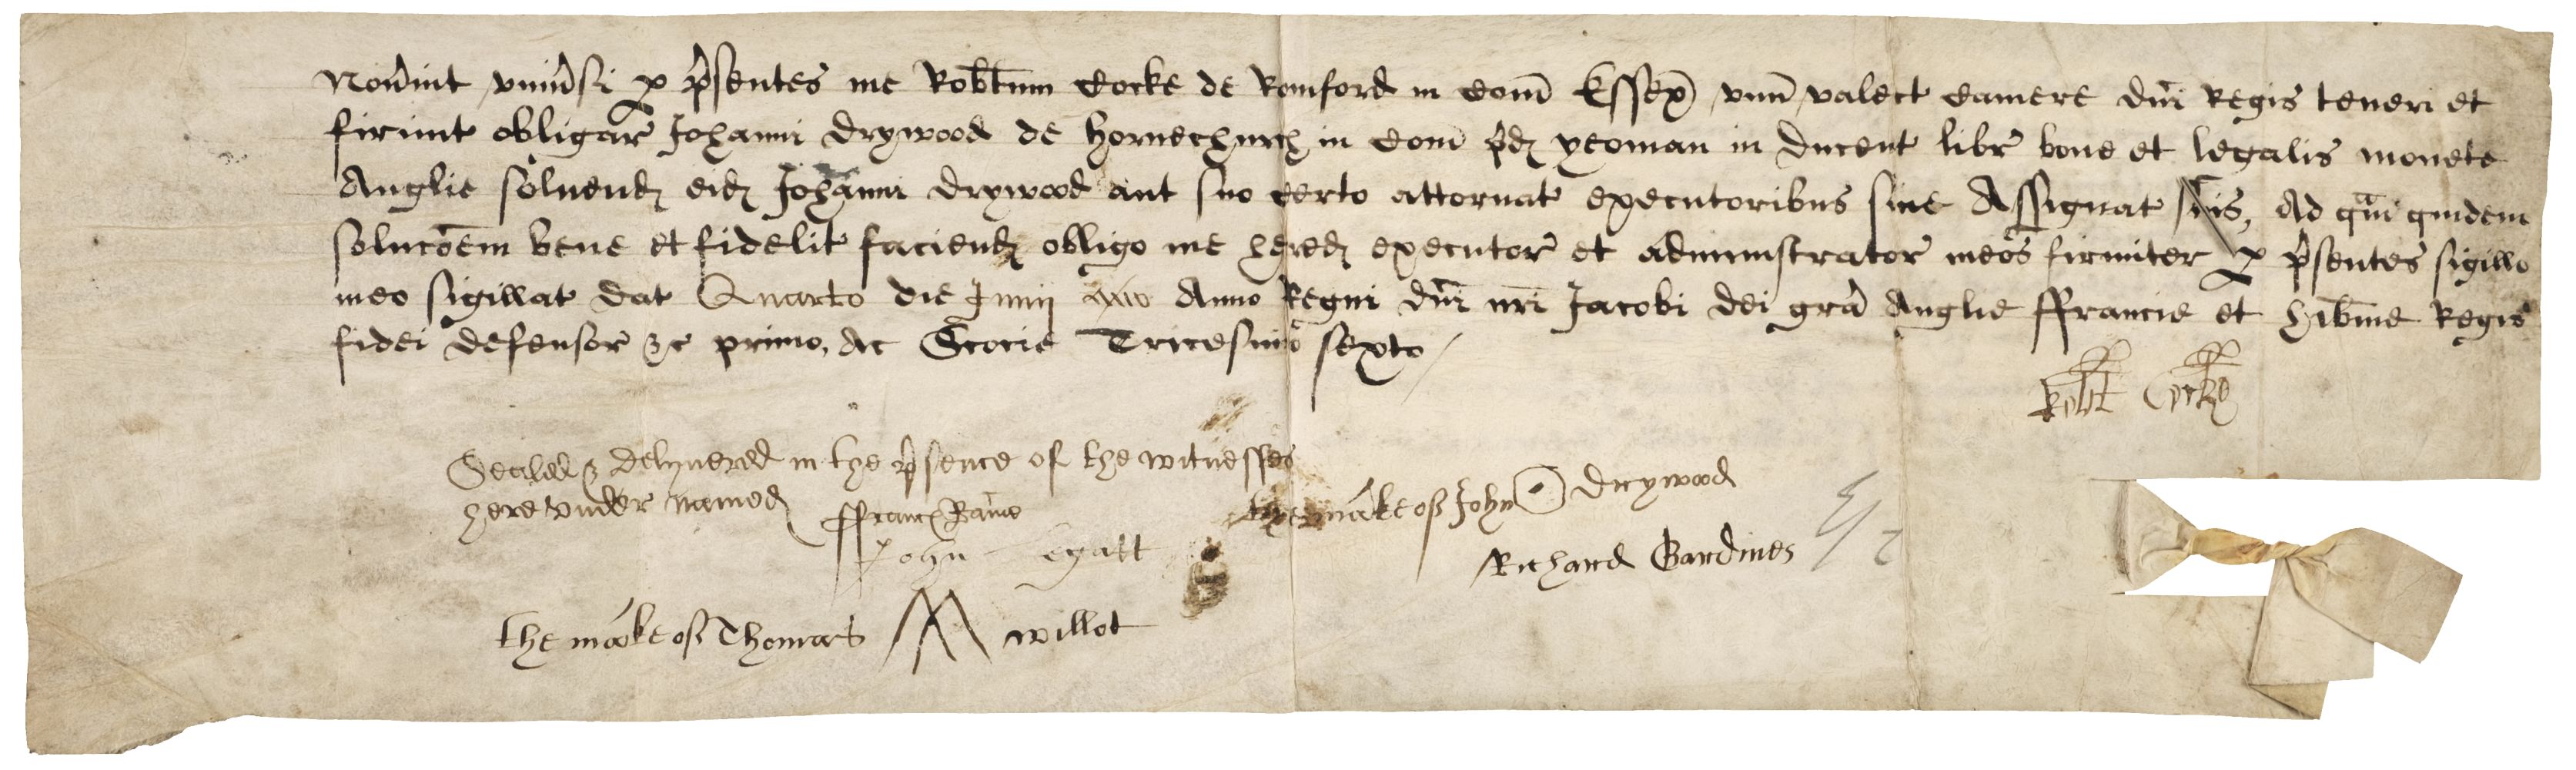 Nov̄int univ̄si p p̄sentes me Rob̄tum Cocke de Romford in Com̄ Essex unū valect Camere Dn̄i Regis teneri et
firmit obligar Johanni Drywood de Hornechurch in Com̄ p̄d yeoman in Ducent libr bone et legalis monete
Anglie solvend eid Johanni Drywood aut suo certo attornat executoribus sive Assignat suis, Ad quā quidem
soluc̄oem bene et fidelit faciend obligo me hered executor et administrator meos firmiter p p̄sentes sigillo
meo sigillat Dat Quarto die Junii Anno Regni Dn̄i nr̄i Jacobi dei grā Anglie Francie et Hib̄nie Regis
fidei defensor &c primo, Ac Scocie Tricesimo sexto
Rob̄t Cocke
Sealed & delyuered in the p̄sence of the witnesses
here vnder named
the marke of John Drywood
ffranc Rame
John Legatt
Richard Gardines
the marke of Thomas willot